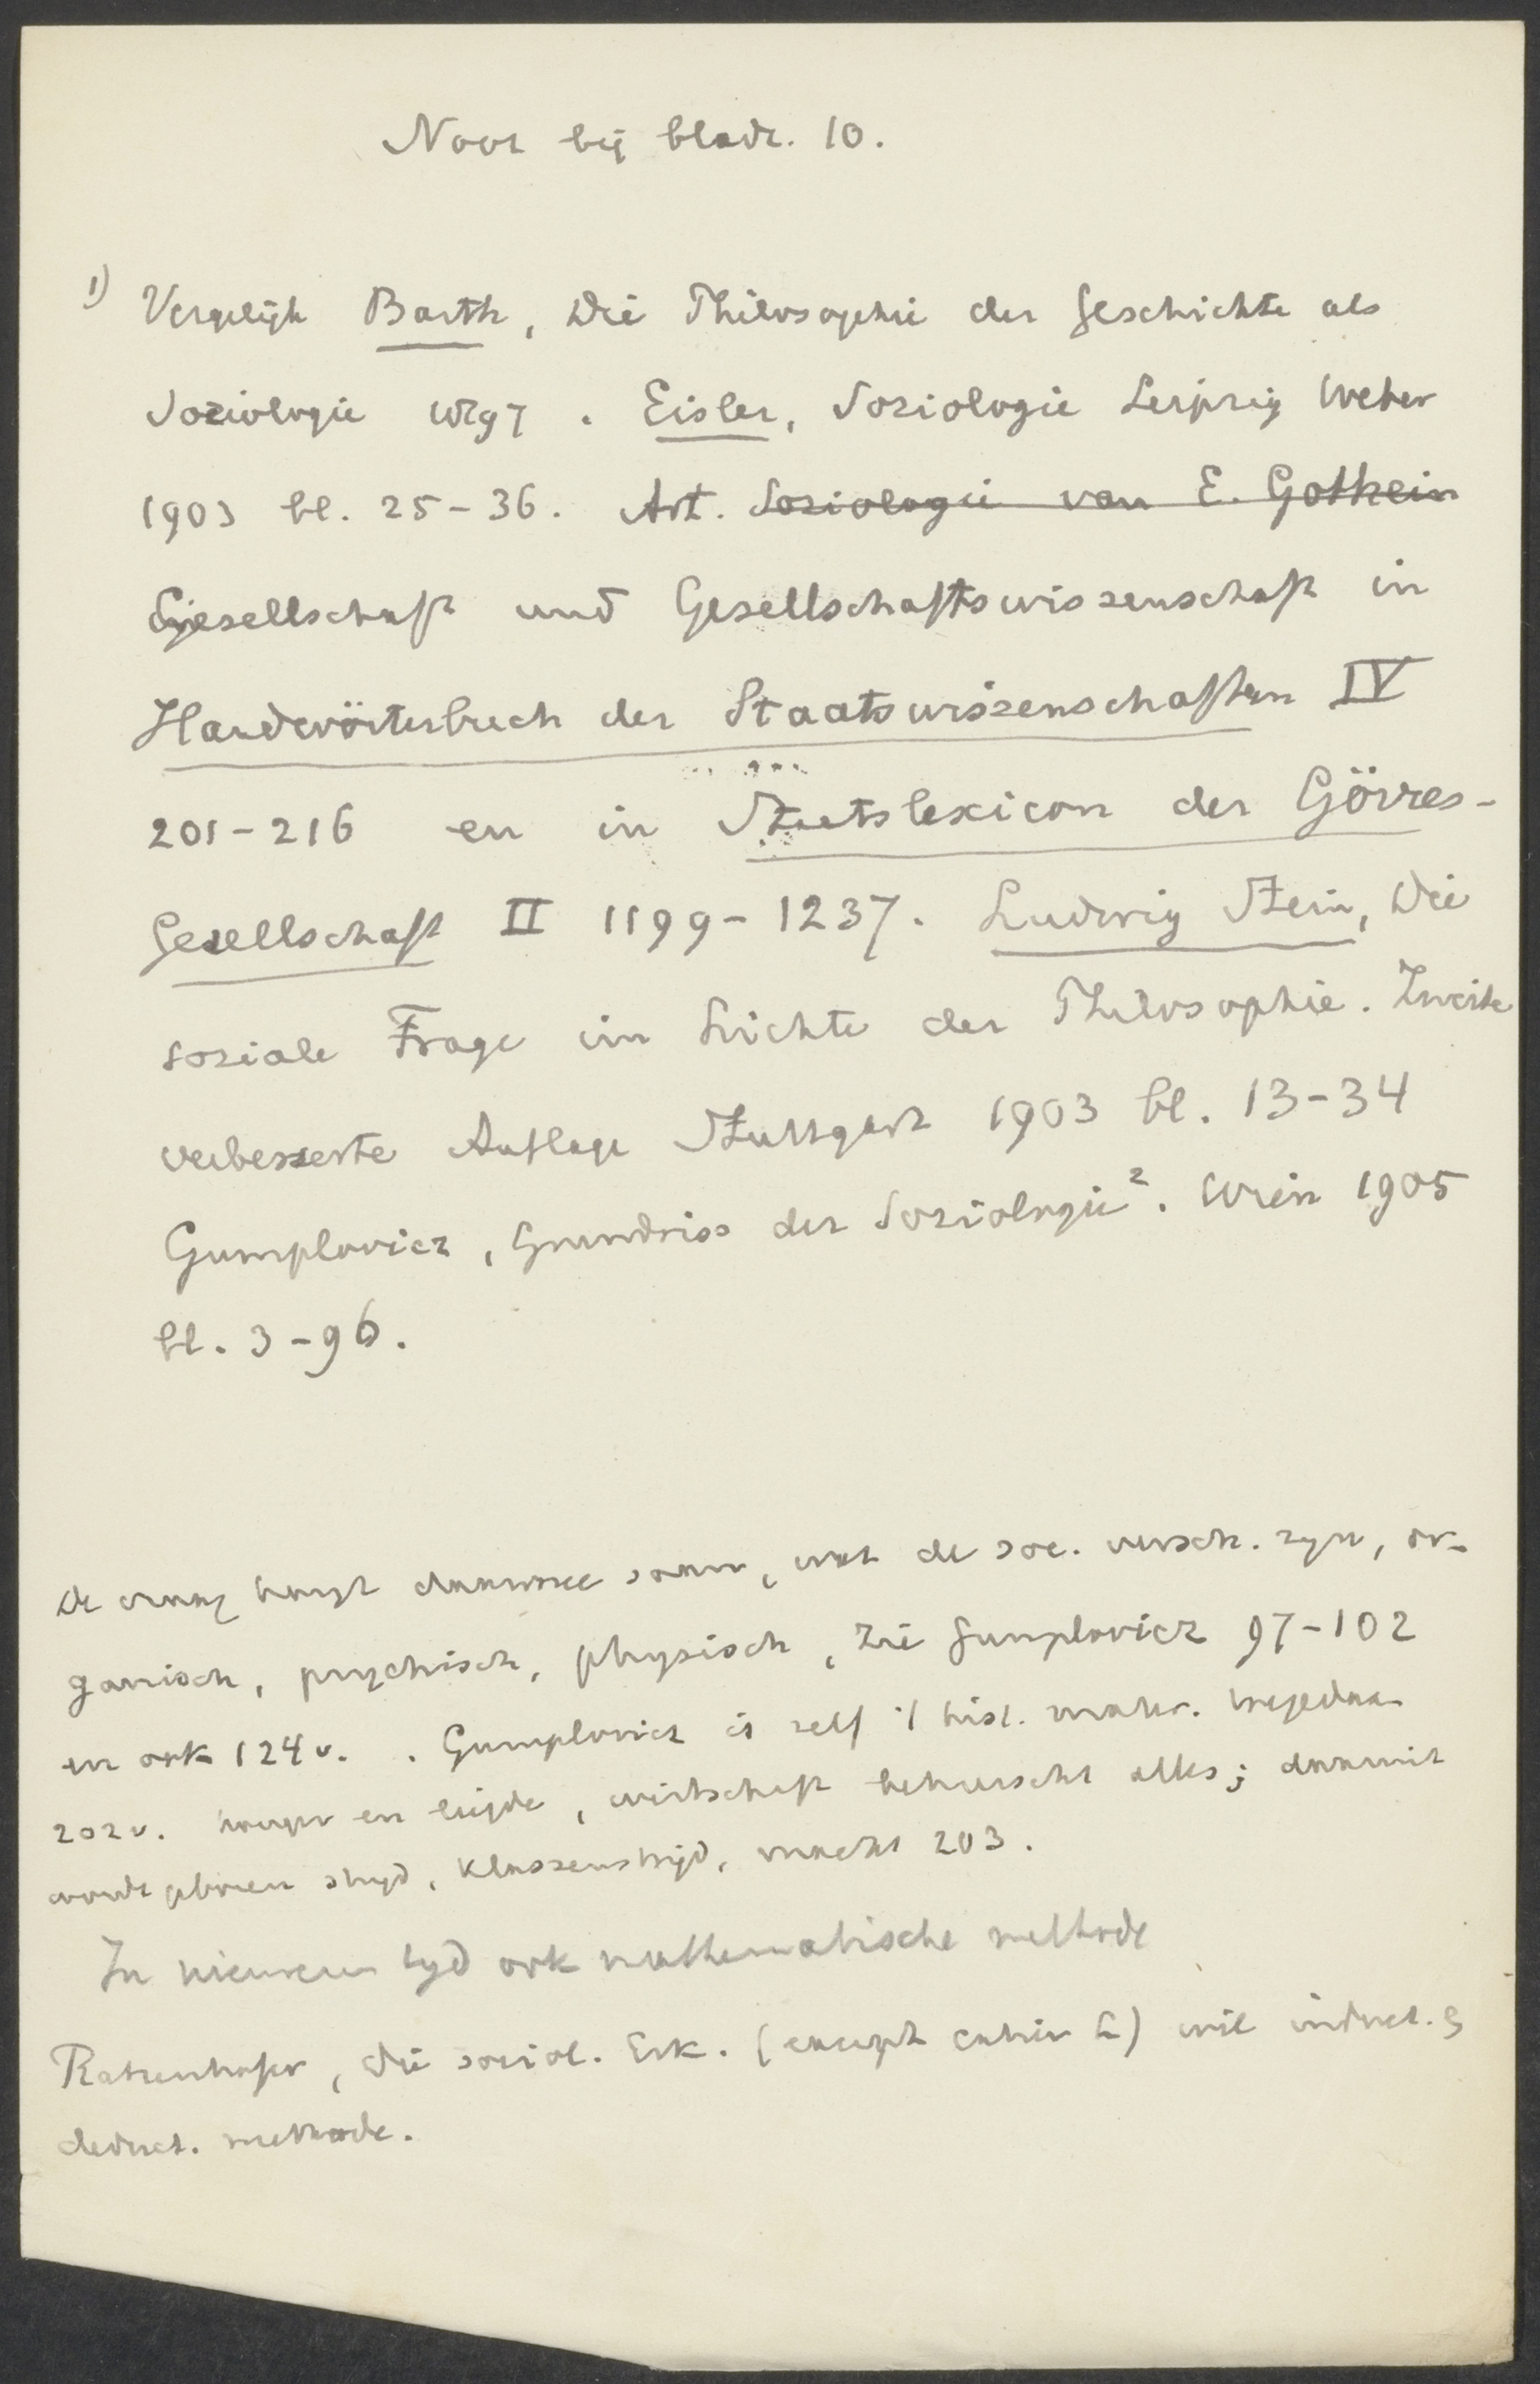 Noot bij bladz. 10.
1) Vergelijk Barth, Die Philosophie der Geschichte als
Soziologie 1897. Eisler, Soziologie Leipzig Weber
1903 bl. 25-36. Art. Soziologie von E. Gothein
Gesellschaft und Gesellschaftswissenschaft in
Handwörterbuch der Staatswissenschaften IV
201-216 en in Staatslexicon der Görres-
Gesellschaft II 1199-1237. Ludwig Stein, Die
soziale Frage im Lichte der Philosophie. Zweite
verbesserte Auflage Stuttgart 1903 bl. 13-34
Gumplovicz, Grundriss der Soziologie². Wien 1905
bl. 3-96.
De vraag hangt daarmee saam, wat de soc. versch. zyn, or-
ganisch, psychisch, physisch, zie Gumplovicz 97-102
en ook 124v. . Gumplovicz is zelf hist. mater.
202v. honger en liefde, wirtschaft beheerscht alles; daaruit
wordt geboren stryd, Klassenstrijd, macht 203.
In nieuweren tyd ook mathematische methode
Ratzenhofer, die sociol. Erk. (excerpt cahier L) wil induct. &
deduct. methode.